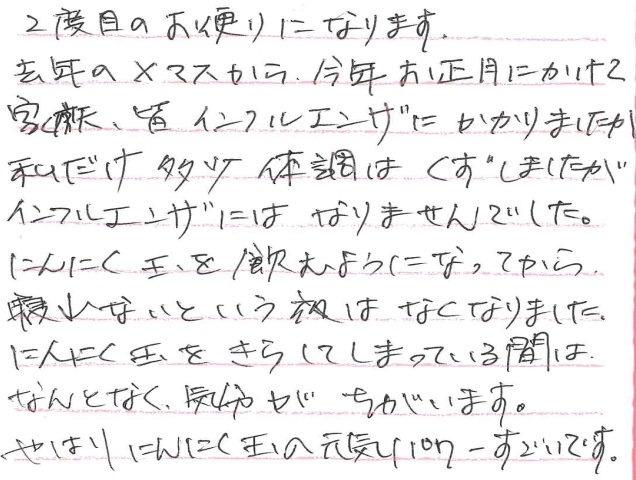 2度目のお便りになります.
去年のXマスから、今年お正月にかけて
家族、皆 インフルエンザに かかりましたが
私だけ 多少 体調は くずしましたが
インフルエンザには なりませんでした。
にんにく玉を飲むようになってから、
寝れないという夜は なくなりました。
にんにく玉をきらしてしまっている間は、
なんとなく、気分が ちがいます。
やはりにんにく玉の元気パワーすごいです。